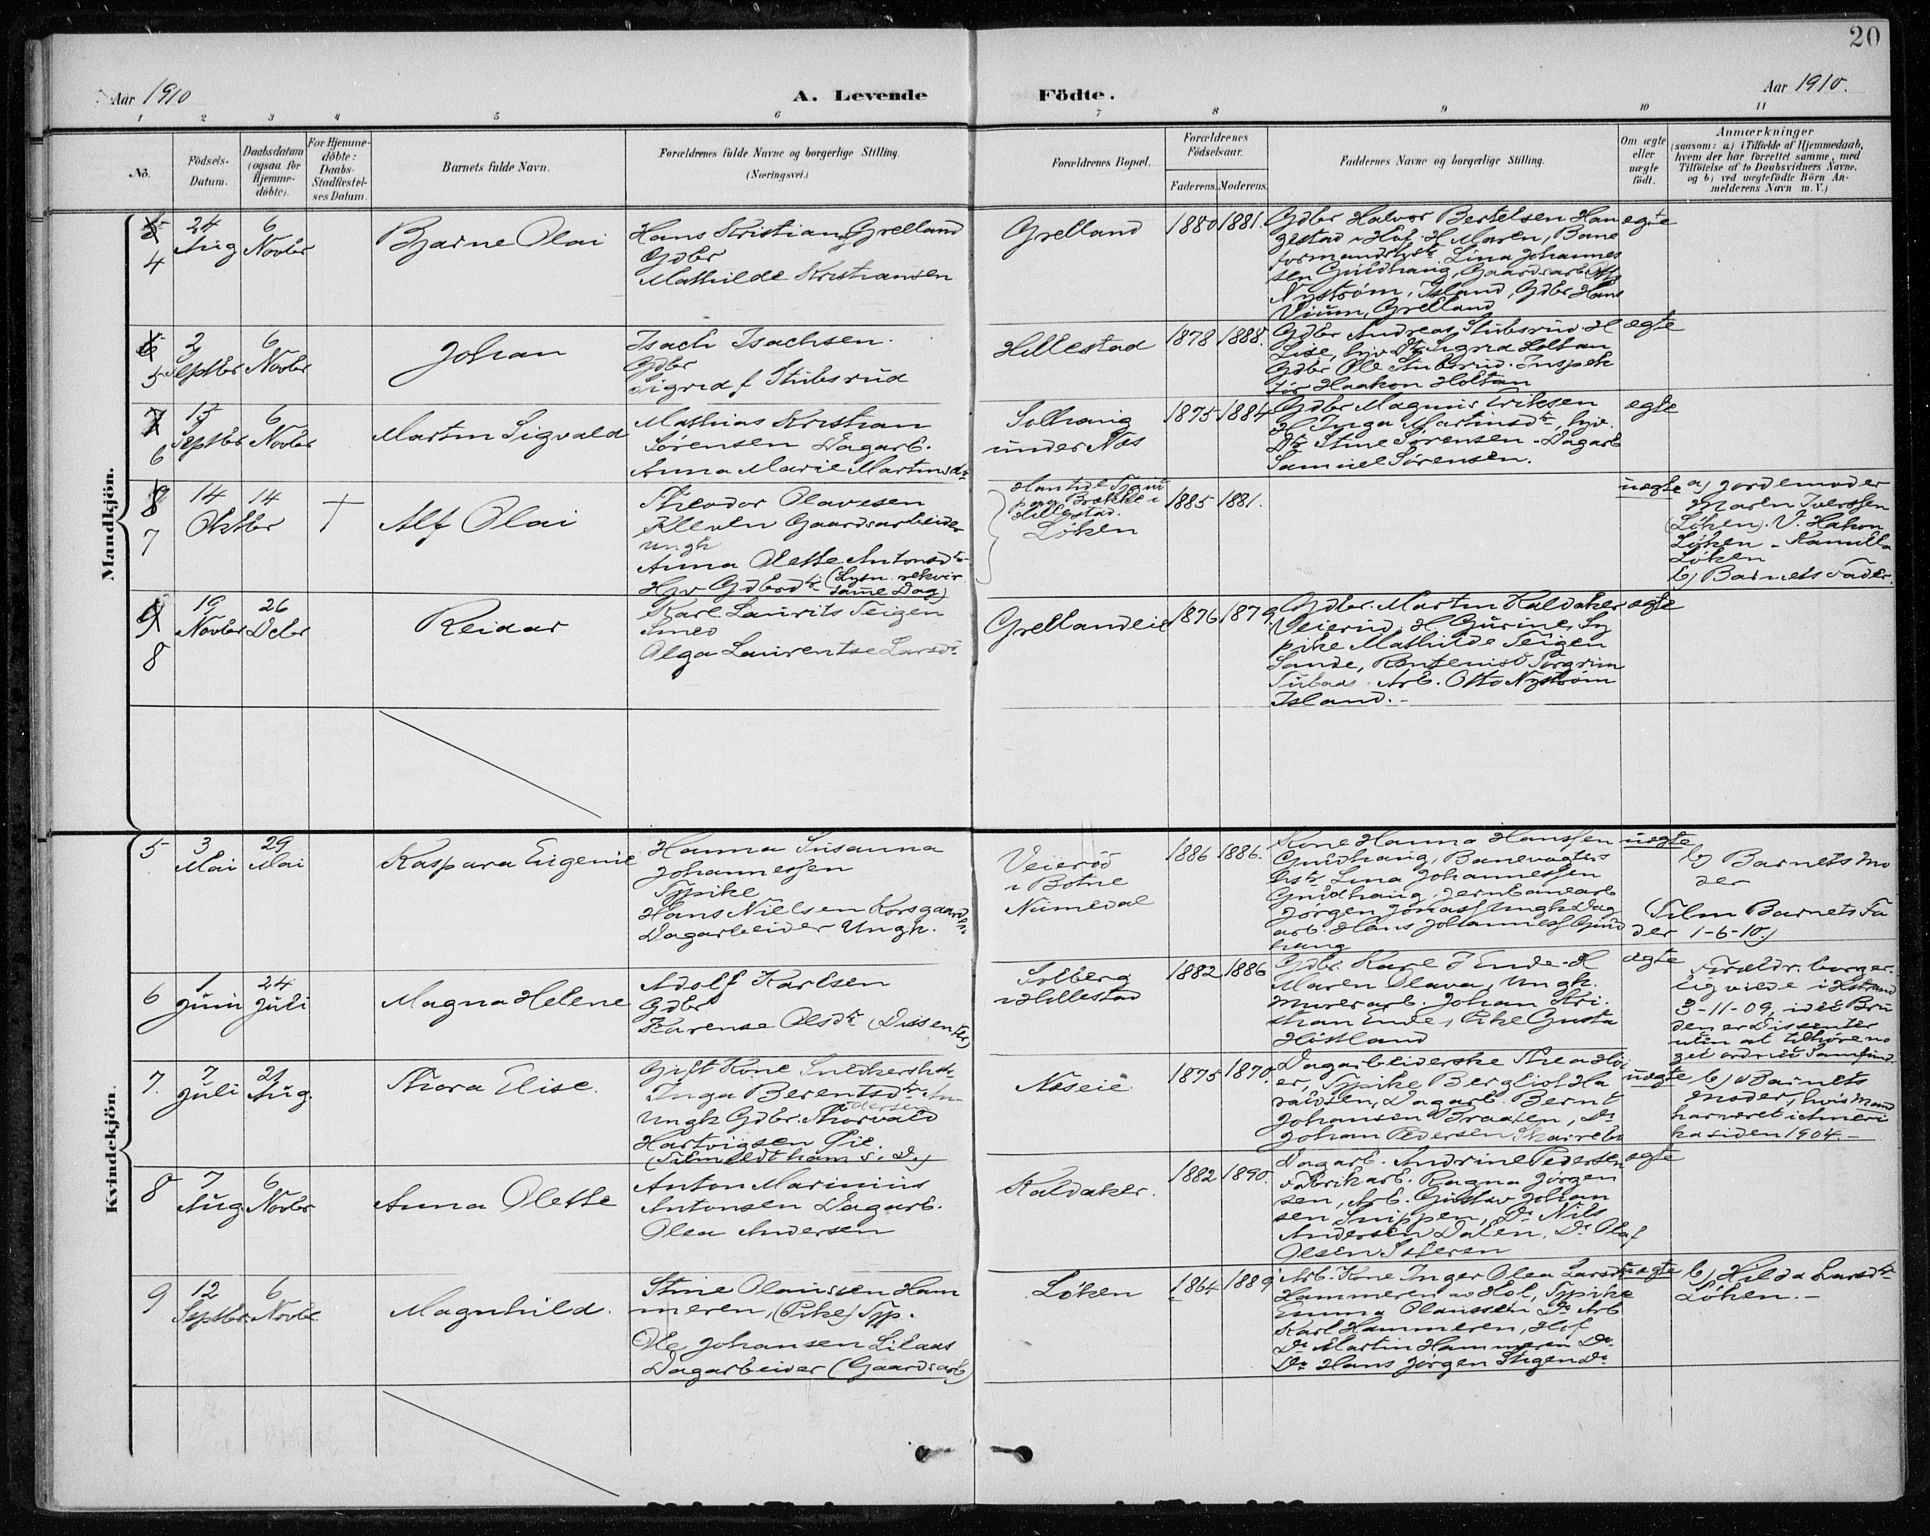 20
Aar 1910
A. Levende Födte.
Aar 1910.
1 2 3 4 5 6 7 8 9 10 11
No.
Födsels-Datum.
Daabsdatum (ogsaa for Hjemme-döbte).
For Hjemme-döbte: Daabs-Stadfæstel-ses Datum.
Barnets fulde Navn.
Forældrenes fulde Navne og borgerlige Stilling.
(Næringsvei.)
Forældrenes Bopæl.
Forældrenes Födselsaar.
Faderens. Moderens.
Faddernes Navne og borgerlige Stilling.
Om ægte eller uægte födt.
Anmærkninger
(saasom: a) i Tilfælde af Hjemmedaab, hvem der har forrettet samme, med Tilföielse af to Daabsvidners Navne. og b) ved uægtefödte Börn An-melderens Navn m. V.)
Mandkjön.
5 4
24 Aug
6 Novbr
Bjarne Olai
Hans Kristian Grelland
Gdbr
Mathilde Kristiansen
Grelland
1880 1881.
Gdbr Halvor Bertelsen Han
gestad i Hof, H Maren, Bane
formandsfrue Lina Johannes
sen Guldhaug, Gaardsarb Otto
Nystrøm, Island, Gdbr Hans
Vium, Grelland
ægte
6 5
2 Septbr
6 Novbr
Johan
Isach Isachsen.
Gdbr
Sigrid f Stubsrud
Hillestad
1878 1888.
Gdbr Andreas Stubsrud H
Lise, hjv Dtr Sigrid Holtan
Gdbr Ole Stubsrud. Inspek
tør Haakon Holtan
ægte
7 6
15 Septbr
6 Novbr
Martin Sigvald
Mathias Kristian
Sørensen Dagarb.
Anna Marie Martinsdtr
Solhaug
under Næs
1875 1884
Gdbr Magnus Eriksen
H Inga Martinsdtr, hjv.
Dtr Stine Sørensen - Dagarb
Samuel Sørensen.
ægte
8 7
14 14
Oktbr
Alf Olai
Theodor Olavesen
Kleven Gaardsarbeider
ungk
Anna Olette Antonsdtr
Hjv Gdbrdtr (Lysn. rekvir
samme Dag)
Hillestad.
Løken
1885 1881.
uægte
a) Jordemoder
Maren Iverssen
(Løken). V. Hakon
Løken - Kamilla
Løken
b) Barnets Fader.
9 8
19 Novbr
26 Debr
Reidar
Karl Laurits Teigen
Smed
Olga Laurentse Larsdtr
Grellandeie
1876 1879.
Gdbr. Martin Kaldaker
Veierud, H Gurine,
pike Mathilde Teigen
Sande, Rentenist Torgrim
Arb. Otto Nystrøm
Island.-
ægte
Kvindekjön
5
3 Mai
29 Mai
Kaspara Eugenie
Hanna Susanna
Johannessen
Tjpike
Hans Nielsen Korsgaard
Dagarbeider Ungk.
Veierød
i Botne
Numedal
1886 1886.
Kone Hanna Hanssen
Guldhaug, Banevogters
Lina Johannessen
Guldhaug Jernbanearb
Jørgen Jonass Ungk Dag
arb. Hans Johanness Guld
haug
uægte
b) Barnets Mo
der
Tilm Barnets Fa
der 1-6-10.)
6
1 Juni
24 Juli
Magna Helene
Adolf Karlsen
Gdbr
Karense Olsdtr (Dissenter)
Solberg
i Hillestad
1882 1886
Gdbr. Karl J Ende. H
Maren Olava, Ungk.
Murerarb. Johan Kri.
stian Ende, Pike Gusta
Holland
ægte
Forældr. borger.
lig viede i Hstrand
3-11-09, idet Bru
den er Dissenter
uten at tilhøre no
get ordnet Samfund.
7.
7 Juli
21 Aug.
Thora Elise.
Gift Kone
Inga Berentsdtr An
dersen
Ungk Gdbr. Thorvald
Hartvigsen Øie.
(Tilmeldt ham s. D.)
Næseie
1875 1870.
Dagarbeiderske Thea Høi
er, Tjpike Bergliot Ha
raldsen, Dagarb. Bernt
Johansen Braaten, Do
Johan Pedersen Skarrebo
uægte
b) Barnets
Moder, hvis Mand
har været i Ameri
ka siden 1904.-
8
7 Aug
6 Novbr
Anna Olette
Anton Marinius
Antonsen Dagarb.
Olea Andersen
Kaldaker.
1882 1890.
Dagarb. Andrine Pedersen
Fabrikarb. Ragna Jørgen
sen, Arb. Gustav Johan
sen Snippen, Do Nils
Andersen Dalen, Do Olaf
Olsen
ægte
9
12 Septbr.
6 Novbr.
Magnhild.
Stine Olaussen Ham
meren, (Pike) Tjp.
Ole Johansen Lilaas
Dagarbeider (Gaardsarb)
Løken
1864 1889
Arb. Kone Inger Olea Larsdtr
Hammeren av Hof, Tjpike
Emma Olaussen Do Arb
Karl Hammeren, Hof
Do Martin Hammeren Do
Do Hans Jørgen Stigen Do
uægte
b) Hilda Larsdtr
Løken.-